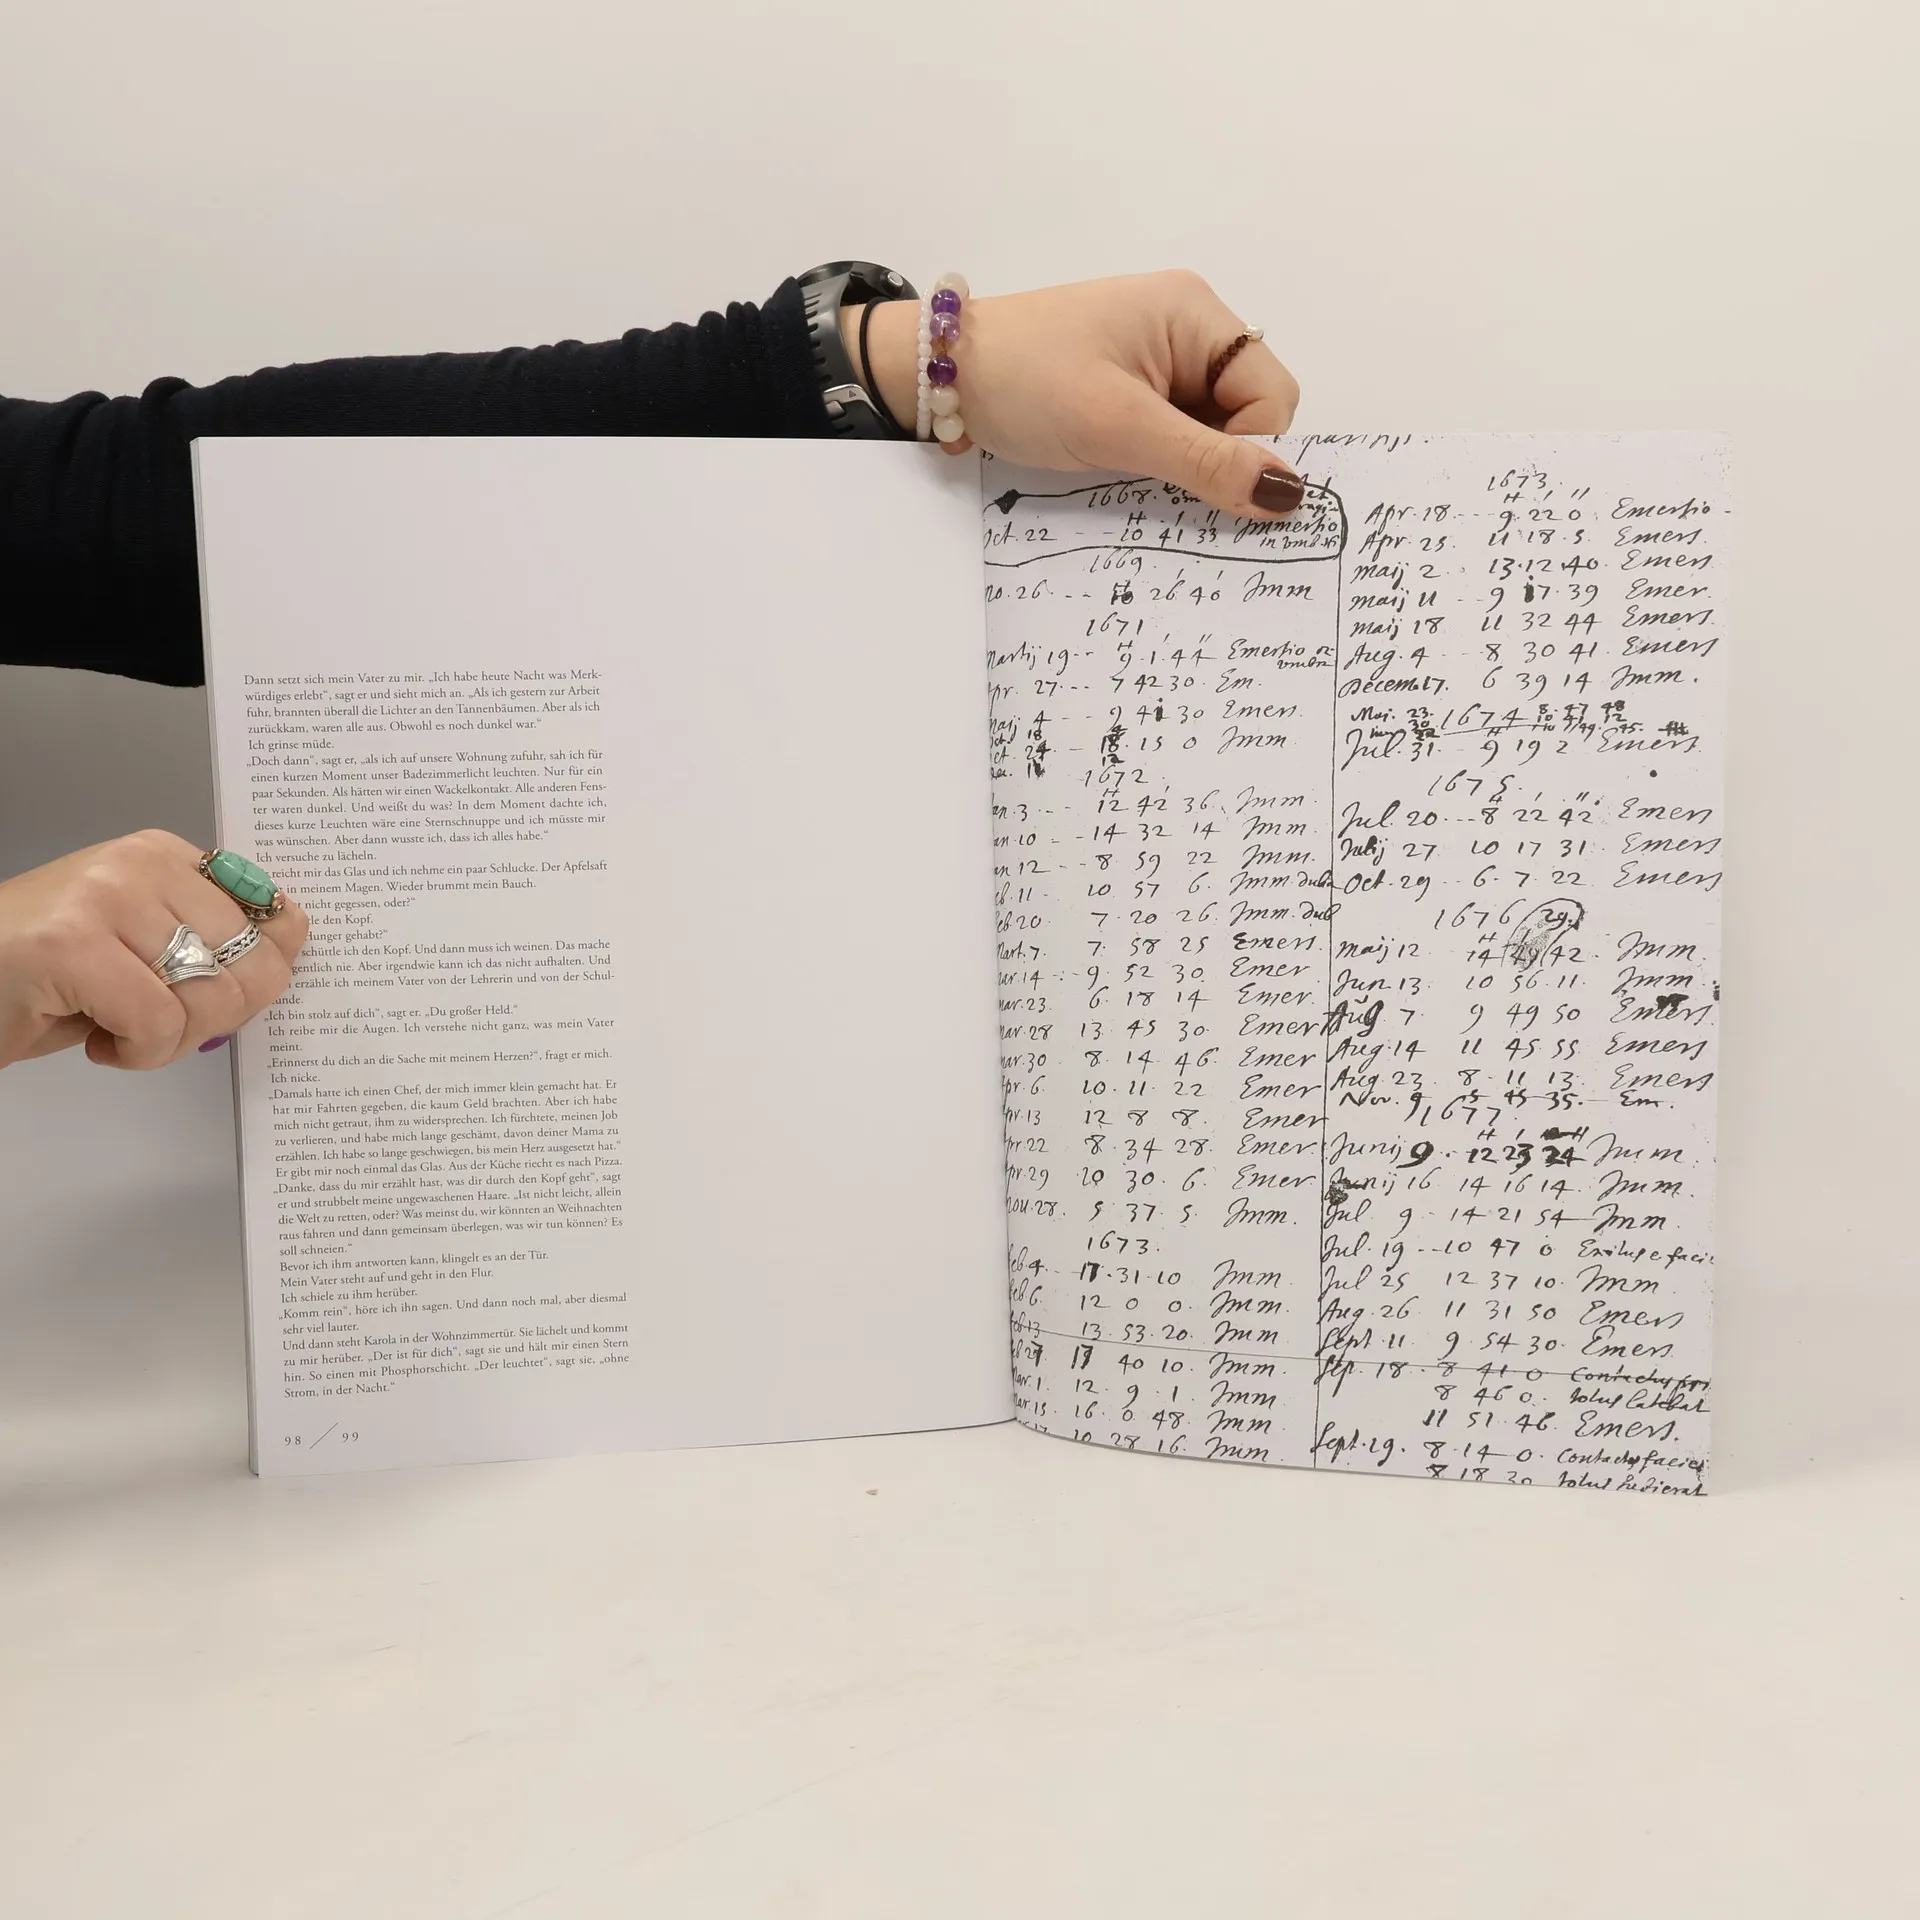 Dann setzt sich mein Vater zu mir. „Ich habe heute Nacht was Merk-
würdiges erlebt“, sagt er und sieht mich an. „Als ich gestern zur Arbeit
fuhr, brannten überall die Lichter an den Tannenbäumen. Aber als ich
zurückkam, waren alle aus. Obwohl es noch dunkel war.“
Ich grinse müde.
„Doch dann“, sagt er, „als ich auf unsere Wohnung zufuhr, sah ich für
einen kurzen Moment unser Badezimmerlicht leuchten. Nur für ein
paar Sekunden. Als hätten wir einen Wackelkontakt. Alle anderen Fens-
ter waren dunkel. Und weißt du was? In dem Moment dachte ich,
dieses kurze Leuchten wäre eine Sternschnuppe und ich müsste mir
was wünschen. Aber dann wusste ich, dass ich alles habe.“
Ich versuche zu lächeln.
reicht mir das Glas und ich nehme ein paar Schlucke. Der Apfelsaft
in meinem Magen. Wieder brummt mein Bauch.
nicht gegessen, oder?“
den Kopf.
Hunger gehabt?“
schüttle ich den Kopf. Und dann muss ich weinen. Das mache
nie. Aber irgendwie kann ich das nicht aufhalten. Und
erzähle ich meinem Vater von der Lehrerin und von der Schul-
„Ich bin stolz auf dich“, sagt er. „Du großer Held.“
Ich reibe mir die Augen. Ich verstehe nicht ganz, was mein Vater
meint.
„Erinnerst du dich an die Sache mit meinem Herzen?“, fragt er mich.
Ich nicke.
„Damals hatte ich einen Chef, der mich immer klein gemacht hat. Er
hat mir Fahrten gegeben, die kaum Geld brachten. Aber ich habe
mich nicht getraut, ihm zu widersprechen. Ich fürchtete, meinen Job
zu verlieren, und habe mich lange geschämt, davon deiner Mama zu
erzählen. Ich habe so lange geschwiegen, bis mein Herz ausgesetzt hat.“
Er gibt mir noch einmal das Glas. Aus der Küche riecht es nach Pizza.
„Danke, dass du mir erzählt hast, was dir durch den Kopf geht“, sagt
er und strubbelt meine ungewaschenen Haare. „Ist nicht leicht, allein
die Welt zu retten, oder? Was meinst du, wir könnten an Weihnachten
raus fahren und dann gemeinsam überlegen, was wir tun können? Es
soll schneien.“
Bevor ich ihm antworten kann, klingelt es an der Tür.
Mein Vater steht auf und geht in den Flur.
Ich schiele zu ihm herüber.
„Komm rein“, höre ich ihn sagen. Und dann noch mal, aber diesmal
sehr viel lauter.
Und dann steht Karola in der Wohnzimmertür. Sie lächelt und kommt
zu mir herüber. „Der ist für dich“, sagt sie und hält mir einen Stern
hin. So einen mit Phosphorschicht. „Der leuchtet“, sagt sie, „ohne
Strom, in der Nacht.“
98 / 99
1668.
Oct. 22 -- 10 41 33 Immersio
1669.
26 40 Imm
1671
Martij 19 -- 9 1 44 Emersio
27 --- 7 42 30. Em.
4 -- 9 41 30 Emers.
18. 15 0 Imm
1672
3 -- 12 42 36. Imm.
10 - 14 32 14 Imm.
12 -- 8 59 22 Imm.
11 - 10 57 6. Imm. dub
20 7 20 26. Imm. dub
Mart. 7. 7 58 25 Emers.
14 -- 9. 52 30. Emer
23 6. 18 14 Emer.
28 13. 45 30. Emer
30 8. 14 46. Emer
6. 10. 11. 22 Emer
13 12 8 8. Emer
22 8. 34 28. Emer
29 10 30. 6. Emer
Nov. 28. 5 37. 5. Imm.
1673.
Feb 4. 17. 31. 10 Imm.
Feb 6 12 0 0. Imm.
Feb 13 13. 53. 20. Imm
40 10. Imm.
1. 12. 9. 1. Imm
15 16. 0 48. Imm
10 28 16. Imm.
1673.
Apr. 18 -- 9. 22 0. Emersio
Apr. 25 11 18. 5. Emers.
Maij 2. 13. 12 40. Emers
Maij 11 -- 9 17. 39 Emer.
Maij 18 11 32 44 Emers.
Aug. 4 -- 8 30 41. Emers
Decem 17. 6 39 14 Imm.
1674
Jul. 31. - 9 19 2 Emers.
1675.
Jul. 20 --- 8 22 42 Emers
Julij 27 10 17 31. Emers
Oct. 29 -- 6. 7. 22. Emers
1676 29.
Maij 12 14 42. Imm.
Jun. 13. 10 56. 11. Imm.
Aug 7 9 49 50 Emers.
Aug. 14 11 45. 55. Emers
Aug. 23. 8. 11 13. Emers
Nov. 9 5 45 35. Em.
1677
Junij 9. 12 23 24 Imm.
Junij 16 14 16 14. Imm.
Jul 9 - 14 21 54 Imm.
Jul. 19 -- 10 47 0
Jul 25 12 37 10. Imm
Aug. 26 11 31 50 Emers
Sept. 11. 9. 54 30. Emers.
Sep. 18. 8 41 0
8 46 0.
11 51. 46. Emers.
Sept. 19. 8. 14 0.
8 18 30